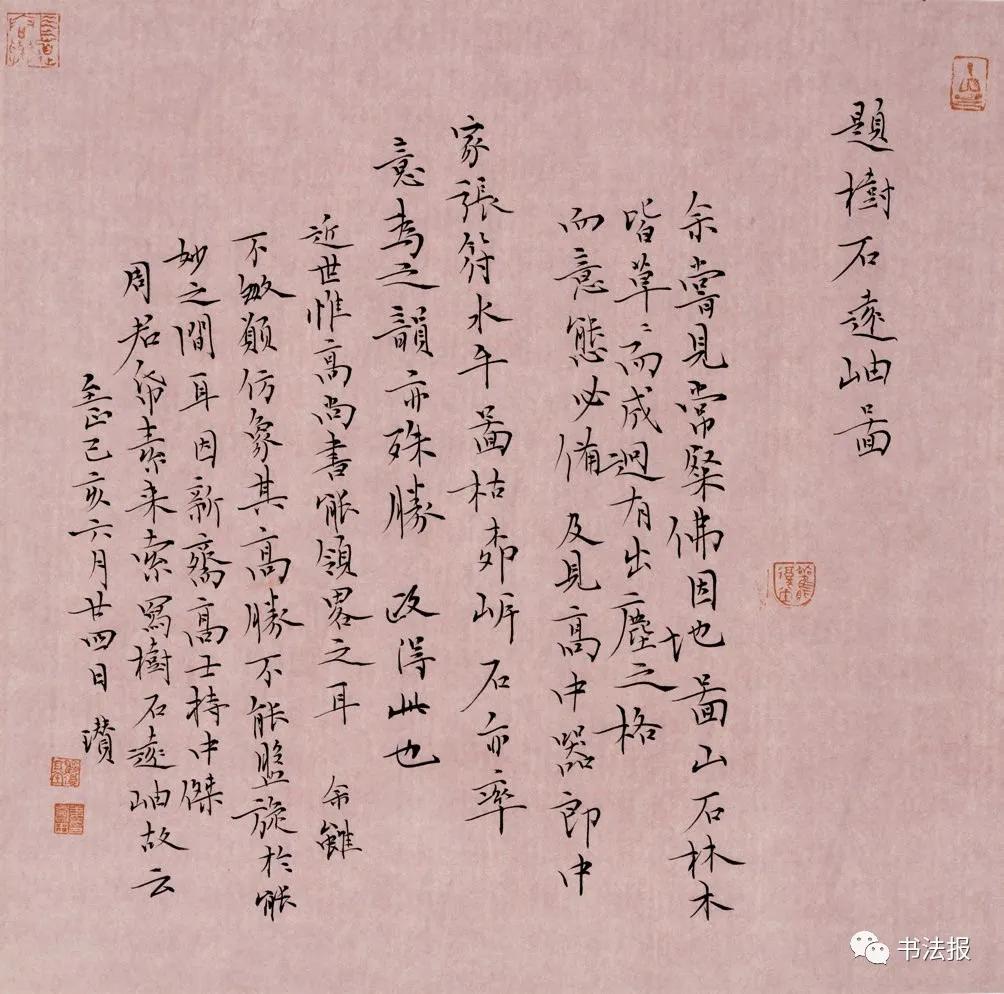 題樹石遠岫圖
余嘗見常粲佛因地圖山石林木
皆草草而成迥有出塵之格
而意態必備 及見高中器郎中
家張符水牛圖枯莭岍石亦率
意為之韻亦殊勝 政得此也
近世惟高尚書能領畧之耳 余雖
不敏願仿象其高勝不能盤旋於能
妙之間耳因新齋高士持中傑
周君帋素来索寫樹石遠岫故云
至正己亥六月廿四日 瓚
书法报